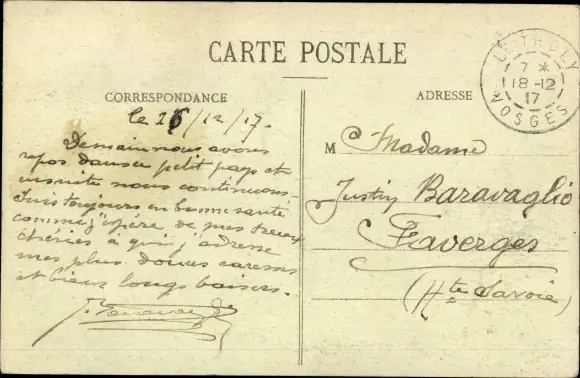 CARTE POSTALE
CORRESPONDANCE
le 16/12/17.
Demain nous avons
repos dans ce petit pays et
ensuite nous continuons.
Suis toujours en bonne santé
comme j'espère, de mes
chéries à qui j'adresse
mes plus douces caresses
et bien longs baisers.
J.
ADRESSE
M Madame
Justin Baravaglio
Faverges
(Hte Savoie)
LE THOLY
7 *
18-12
17
VOSGES